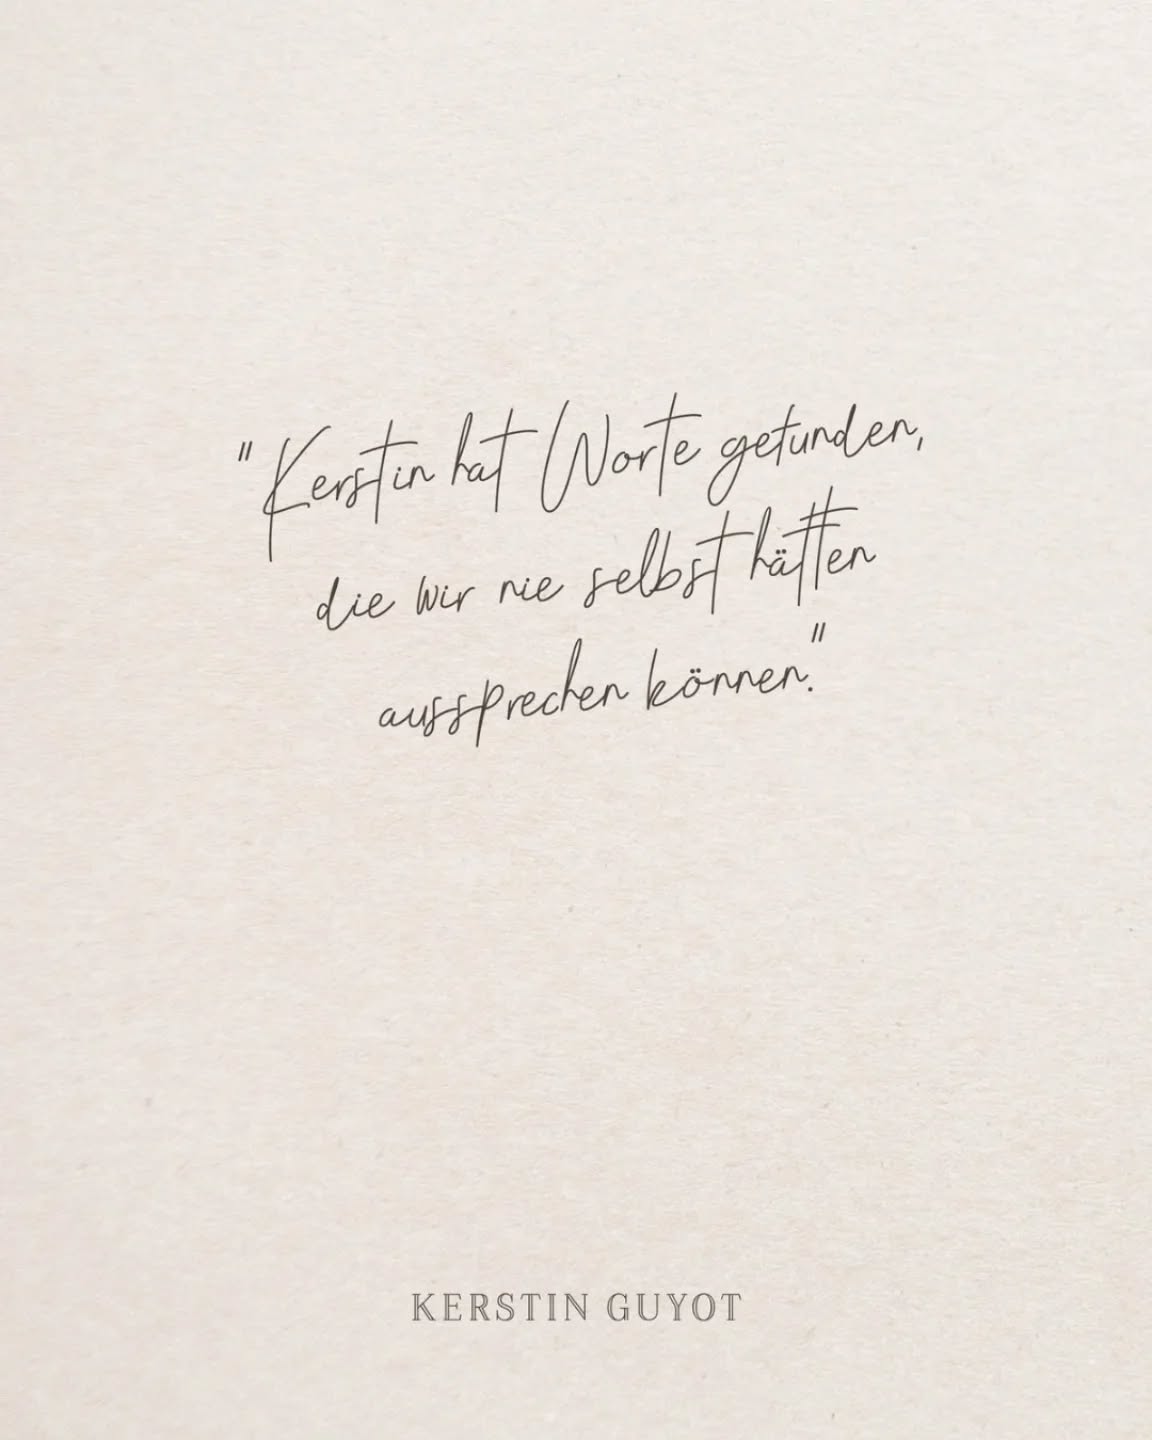 "Kerstin hat Worte gefunden,
die wir nie selbst hätten
aussprechen können."
KERSTIN GUYOT